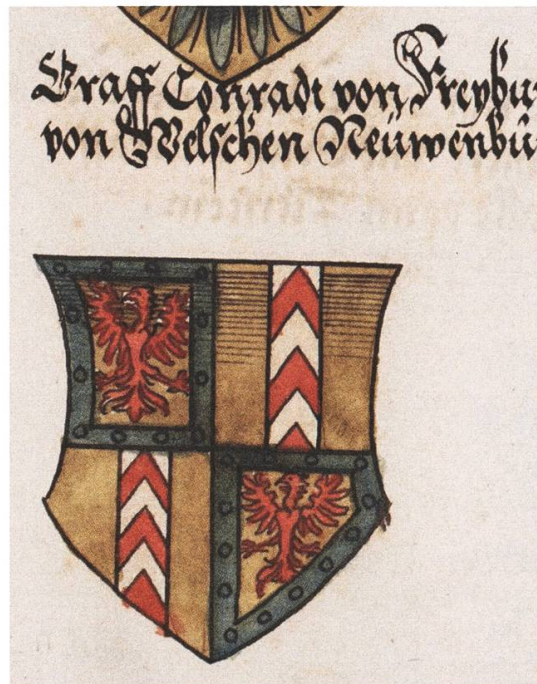 Graff Conradt von Freybu
von Welschen Neüwenbu